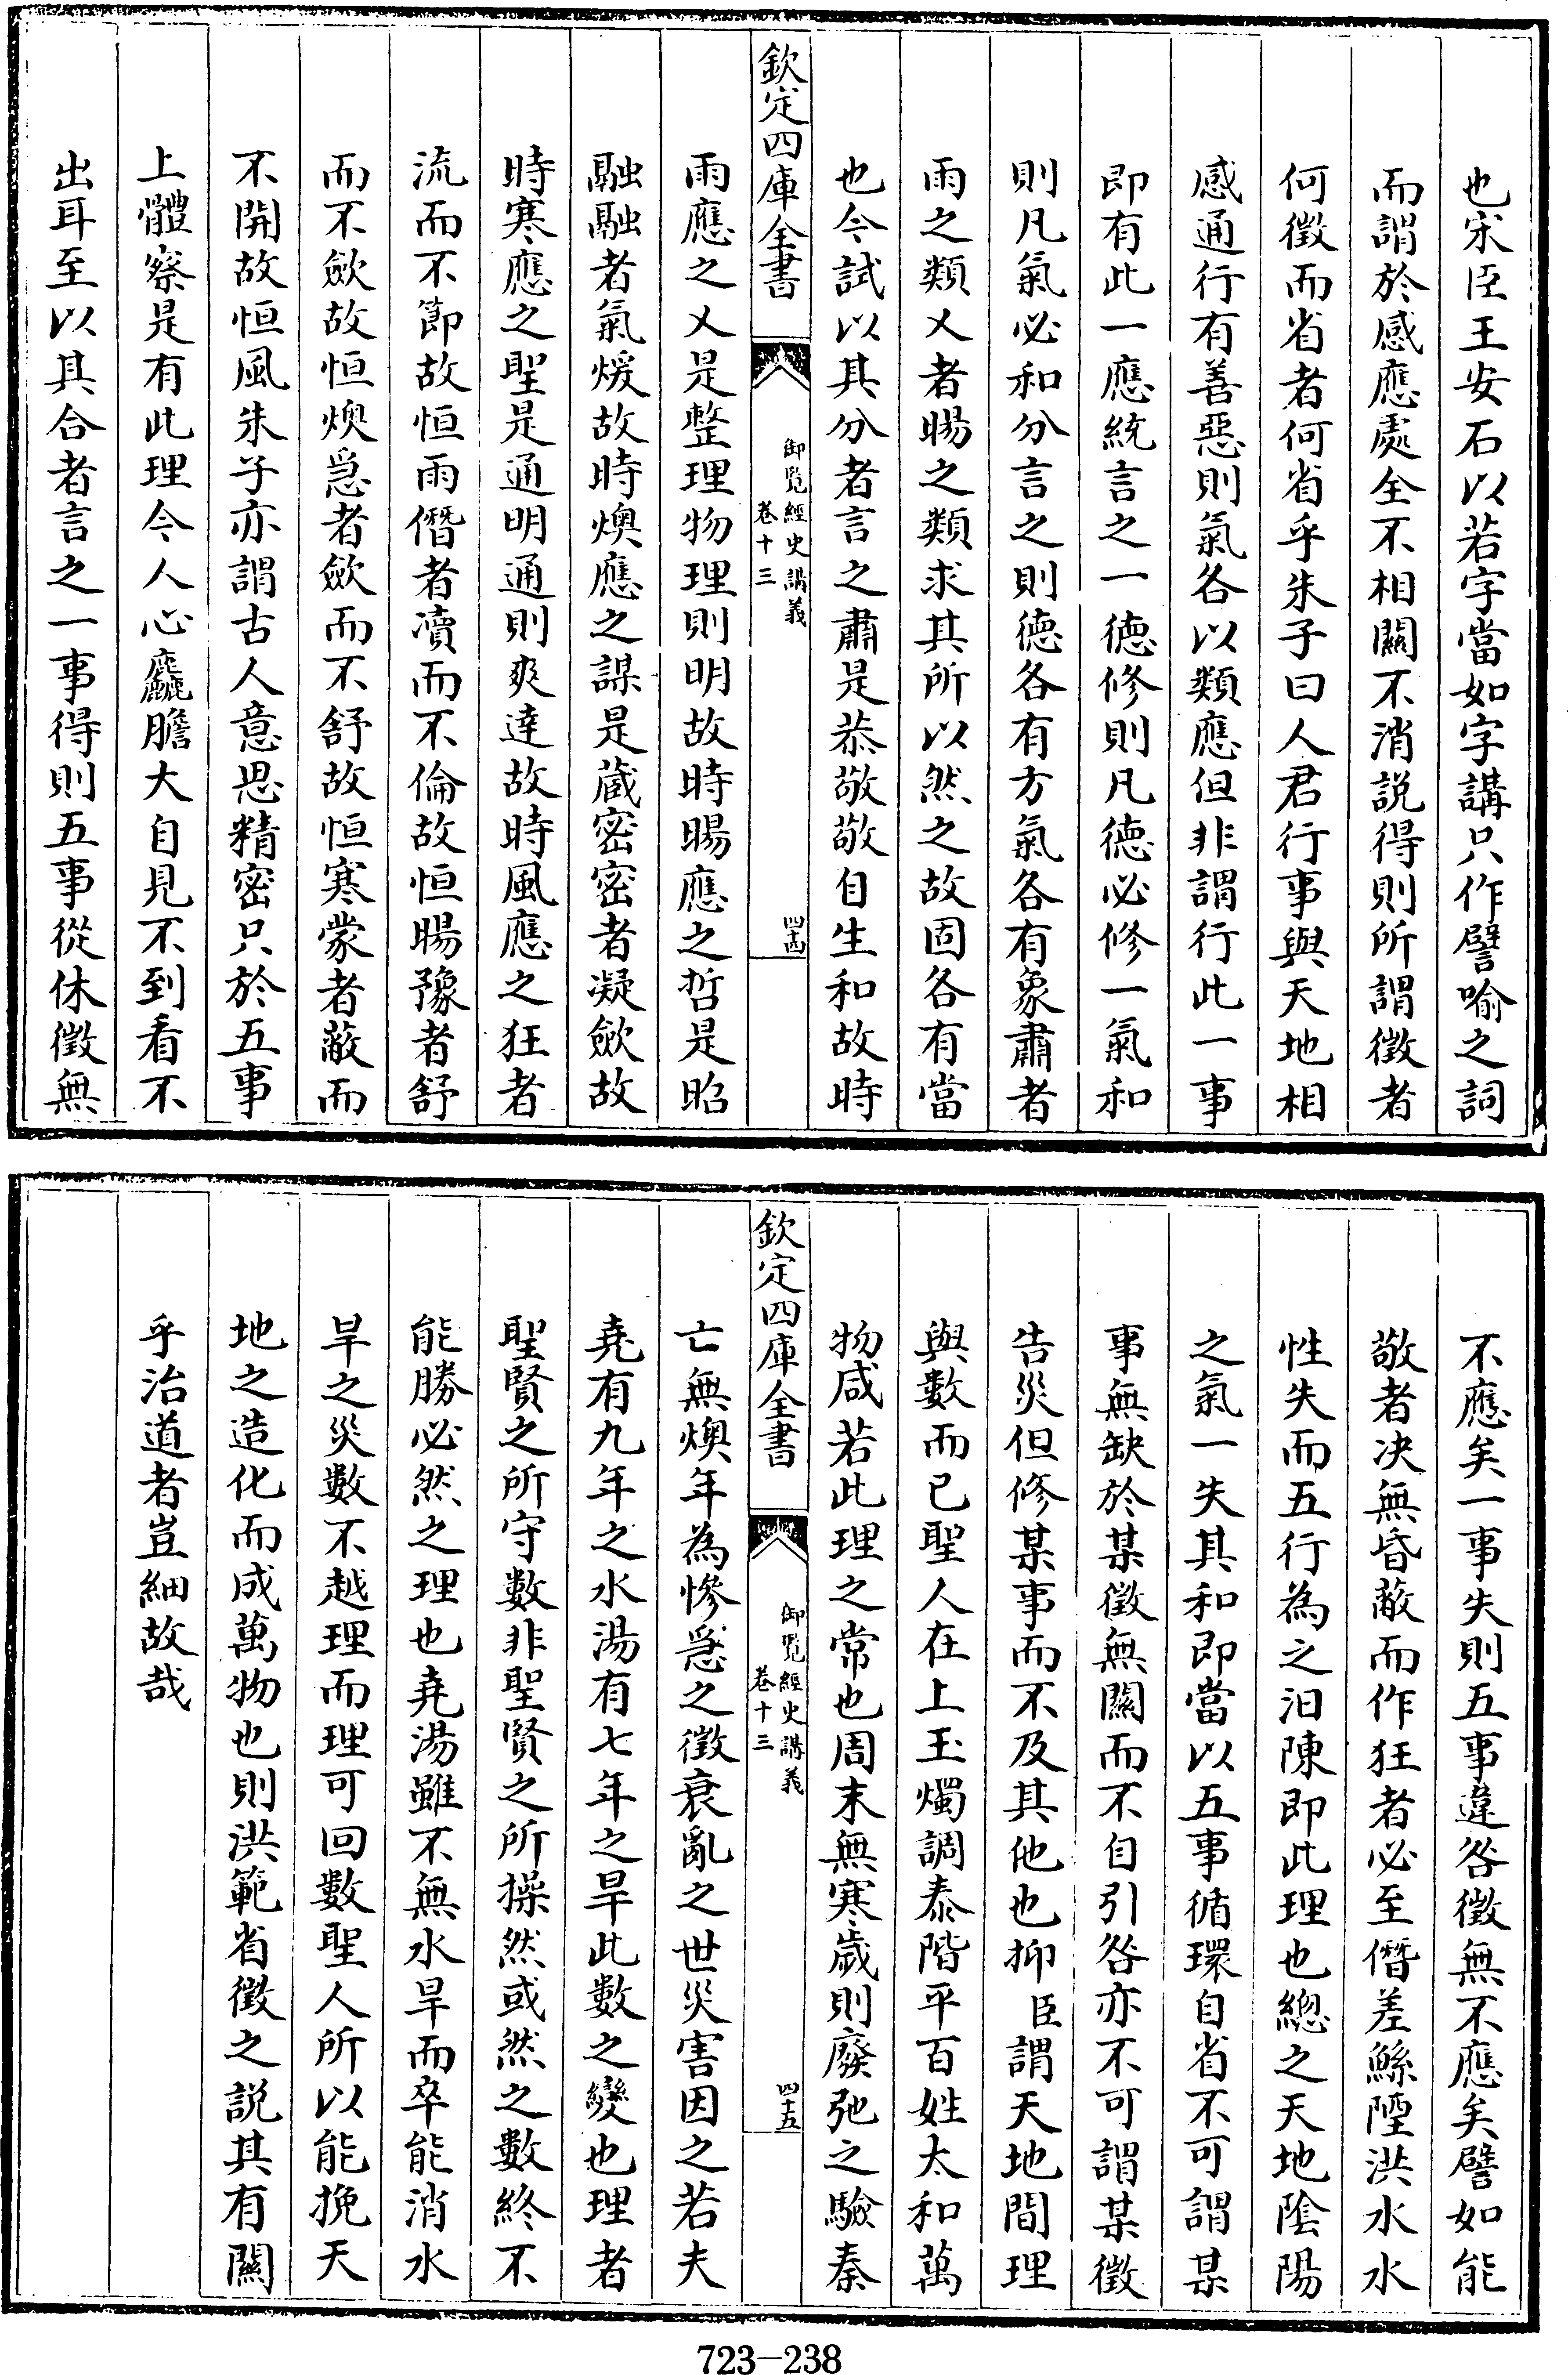 也宋臣王安石以若字當如字講只作譬喻之詞
而謂於感應處全不相關不消説得則所謂徵者
何徵而省者何省乎朱子曰人君行事與天地相
感通行有善惡則氣各以類應但非謂行此一事
即有此一應統言之一徳修則凡徳必修一氣和
則凡氣必和分言之則徳各有方氣各有象肅者
雨之類乂者暘之類求其所以然之故固各有當
也今試以其分者言之肅是恭敬敬自生和故時
欽定四庫全書
御覧經史講義
卷十三
四十四
雨應之乂是整理物理則明故時暘應之哲是昭
融融者氣煖故時燠應之謀是蔵密密者凝斂故
時寒應之聖是通明通則爽達故時風應之狂者
流而不節故恒雨僭者瀆而不倫故恒暘豫者舒
而不斂故恒燠急者斂而不舒故恒寒蒙者蔽而
不開故恒風朱子亦謂古人意思精密只於五事
上體察是有此理今人心麤膽大自見不到看不
出耳至以其合者言之一事得則五事從休徵無
不應矣一事失則五事違咎徵無不應矣譬如能
敬者决無昏蔽而作狂者必至僭差鯀陻洪水水
性失而五行為之汨陳即此理也總之天地陰陽
之氣一失其和即當以五事循環自省不可謂某
事無缺於某徵無關而不自引咎亦不可謂某徵
告災但修某事而不及其他也抑臣謂天地間理
與數而已聖人在上玉燭調泰階平百姓太和萬
物咸若此理之常也周末無寒歲則廢弛之驗秦
欽定四庫全書
御覧經史講義
卷十三
四十五
亡無燠年為慘急之徵衰亂之世災害因之若夫
堯有九年之水湯有七年之旱此數之變也理者
聖賢之所守數非聖賢之所操然或然之數終不
能勝必然之理也堯湯雖不無水旱而卒能消水
旱之災數不越理而理可回數聖人所以能挽天
地之造化而成萬物也則洪範省徵之説其有關
乎治道者豈細故哉
723-238